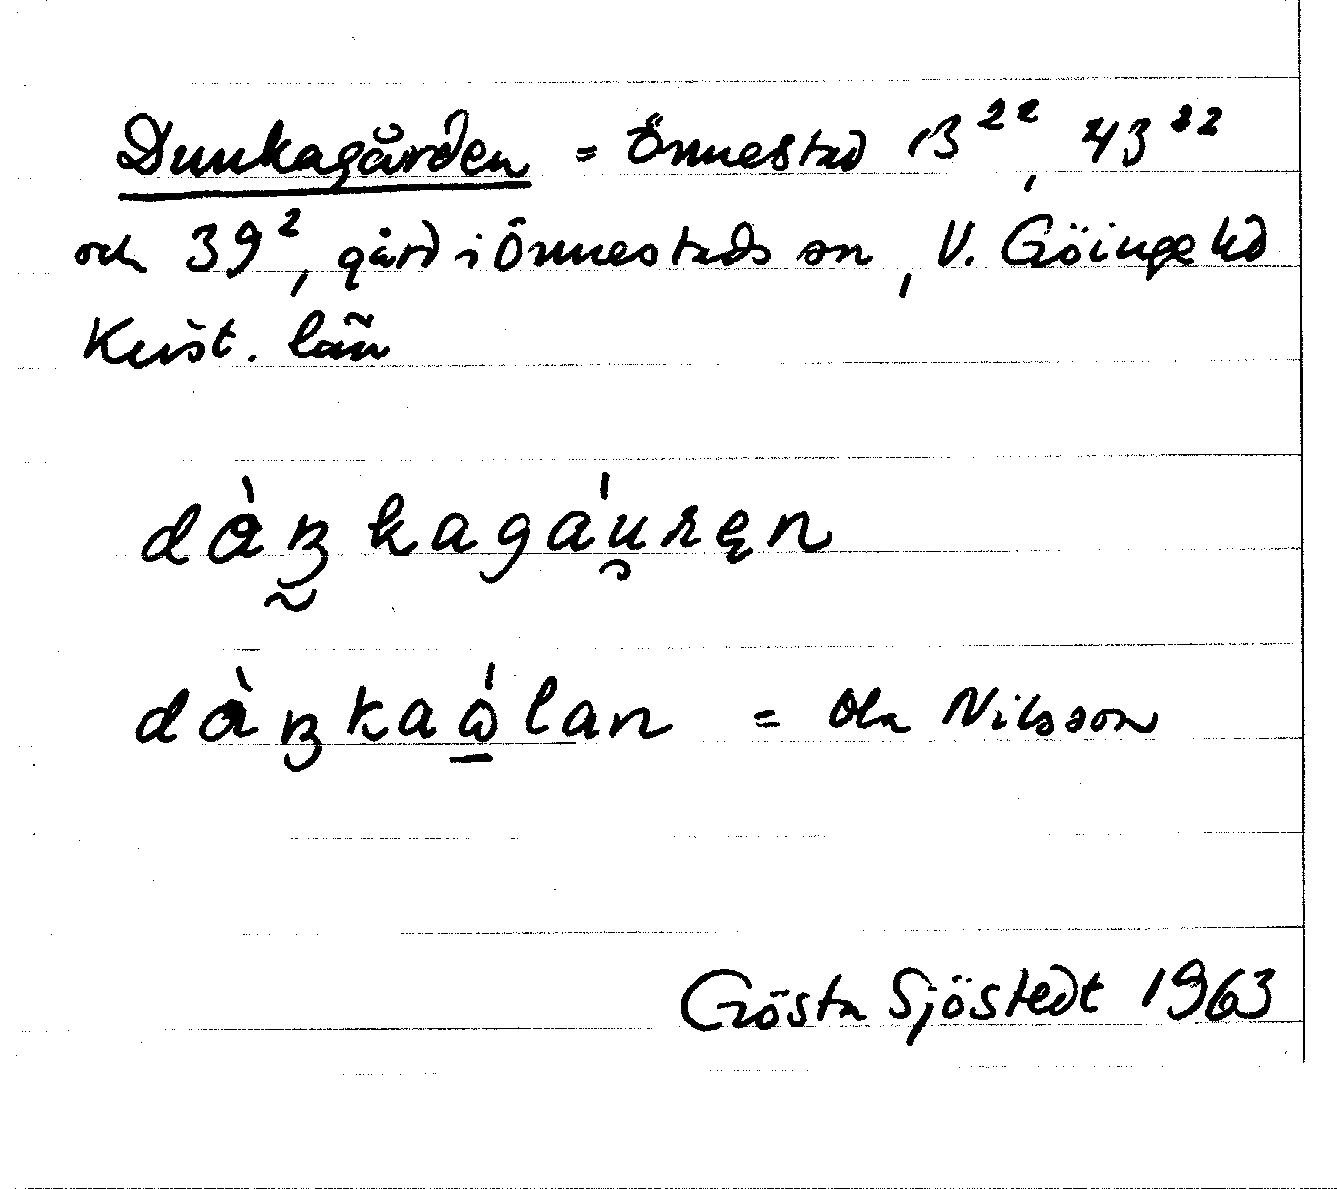 Dunkagården = Önnestad 13²², 43²²
och 39², gård i Önnestads sn, V. Göinge hd
Krist. län
dàŋkagáu̯ren
dàŋkaólan = Ola Nilsson
Gösta Sjöstedt 1963